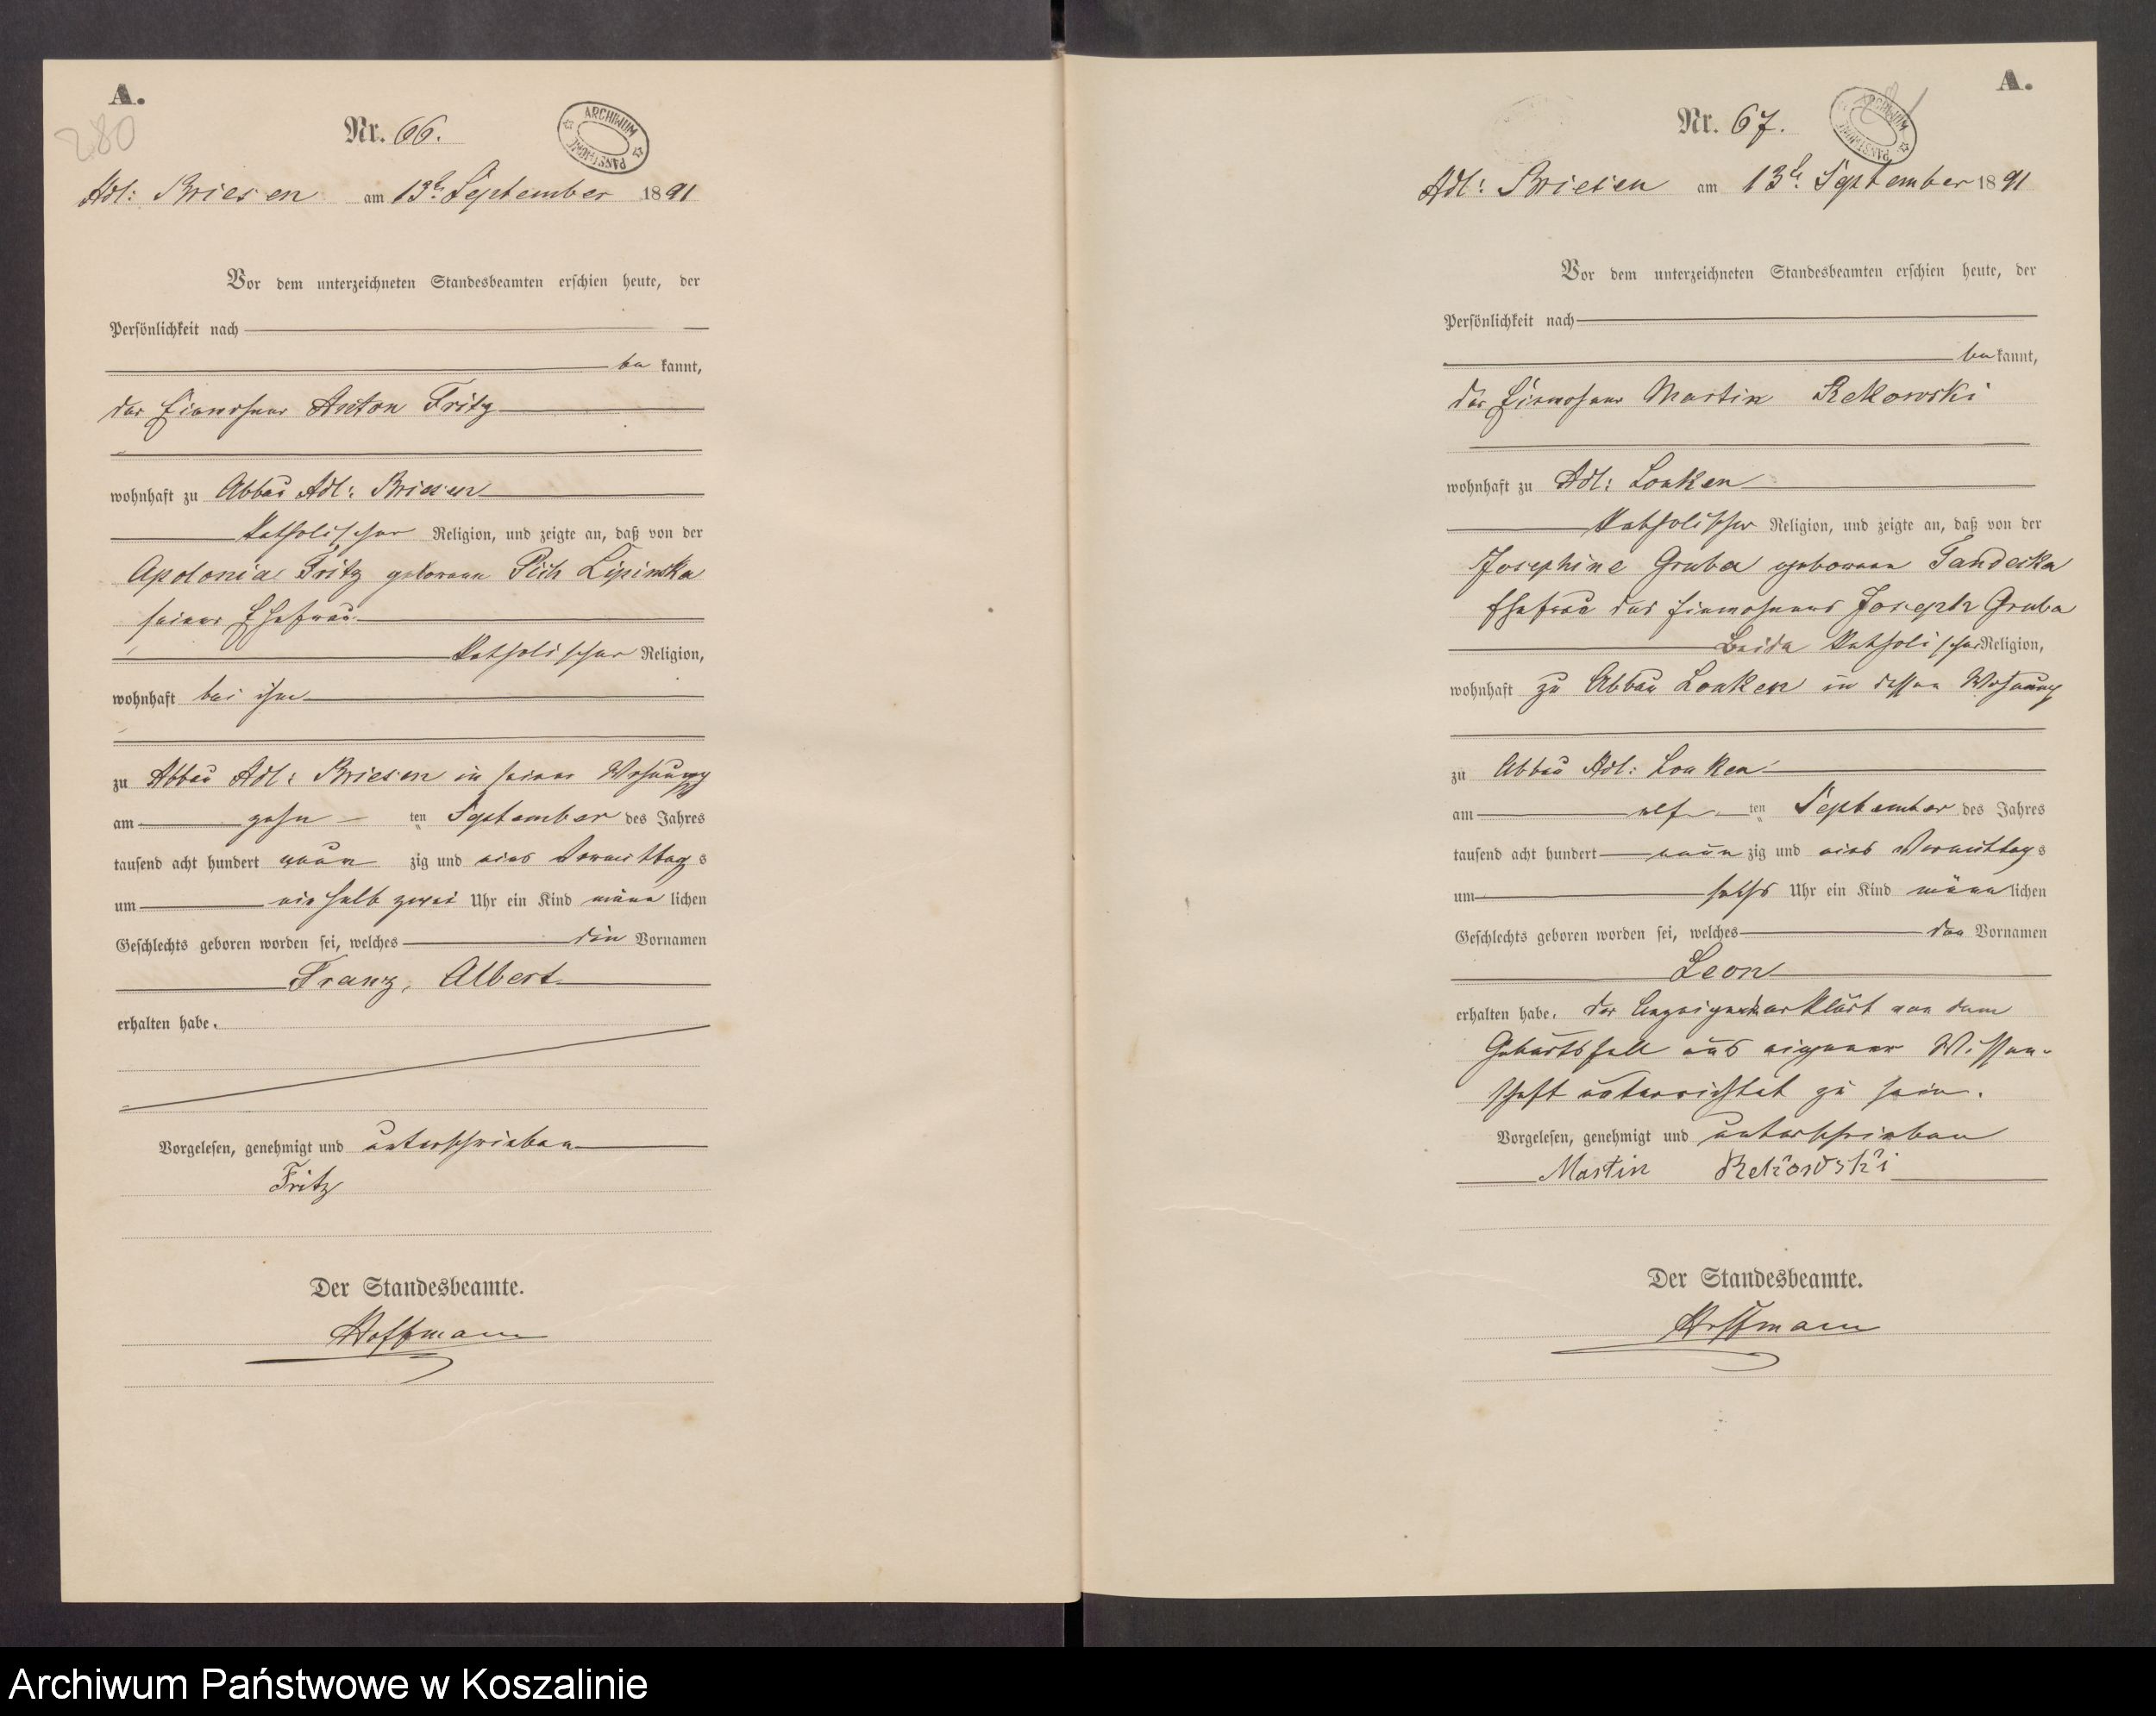 A.
280
Nr. 66.
ARCHIWUM PAŃSTWOWE
Adl: Briesen am 13t. September 1891
Vor dem unterzeichneten Standesbeamten erschien heute, der
Persönlichkeit nach
be kannt,
der Einwohner Anton Fritz
wohnhaft zu Abbau Adl: Briesen
katholischer Religion, und zeigte an, daß von der
Apolonia Fritz geborene Pich Lipinska
seiner Ehefrau
katholischer Religion,
wohnhaft bei ihm
zu Abbau Adl: Briesen in seiner Wohnung
am zehn ten September des Jahres
tausend acht hundert neun zig und eins Vormittags
um ein halb zwei Uhr ein Kind männ lichen
Geschlechts geboren worden sei, welches die Vornamen
Franz, Albert
erhalten habe.
Vorgelesen, genehmigt und unterschrieben
Fritz
Der Standesbeamte.
Hoffmann
A.
Nr. 67.
ARCHIWUM PAŃSTWOWE
Adl: Briesen am 13t. September 1891
Vor dem unterzeichneten Standesbeamten erschien heute, der
Persönlichkeit nach
be kannt,
der Einwohner Martin Rekowski
wohnhaft zu Adl: Lonken
katholischer Religion, und zeigte an, daß von der
Josephine Gruba geborene Tandecka
Ehefrau des Einwohners Joseph Gruba
Beide katholischer Religion,
wohnhaft zu Abbau Lonken in dessen Wohnung
zu Abbau Adl: Lonken
am elf ten September des Jahres
tausend acht hundert neun zig und eins Vormittags
um sechs Uhr ein Kind männ lichen
Geschlechts geboren worden sei, welches den Vornamen
Leon
erhalten habe. Der Anzeigende erklärt von dem
Geburtsfall aus eigener Wissen-
schaft unterrichtet zu sein.
Vorgelesen, genehmigt und unterschrieben
Martin Rekowski
Der Standesbeamte.
Hoffmann
Archiwum Państwowe w Koszalinie